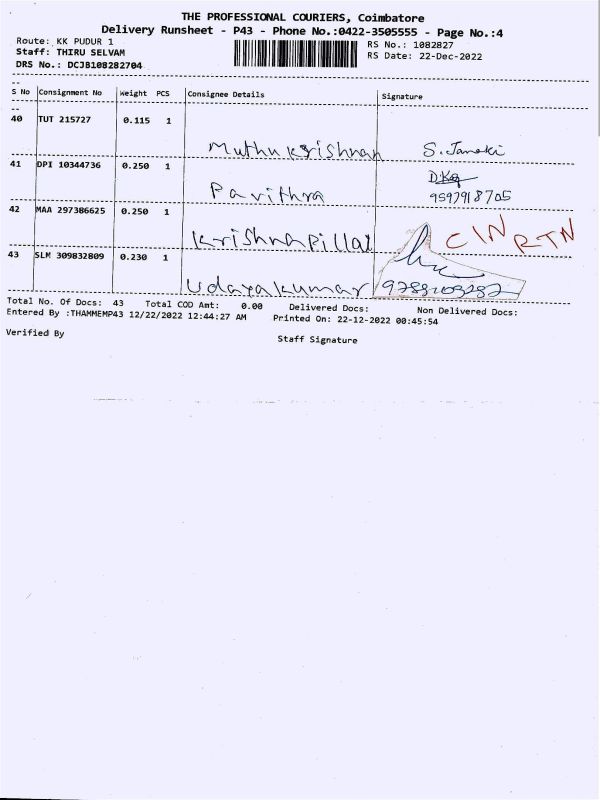 THE PROFESSIONAL COURIERS, Coimbatore
Delivery Runsheet - P43 - Phone No.:0422-3505555 - Page No.:4
Route: KK PUDUR 1 RS No.: 1082827
Staff: THIRU SELVAM RS Date: 22-Dec-2022
DRS No.: DCJB108282704
S No Consignment No Weight PCS Consignee Details Signature
40 TUT 215727 0.115 1
Muthukrishnan S. Janaki
41 DPI 10344736 0.250 1
Pavithra 9597918705
42 MAA 297386625 0.250 1
Krishnapillai CIN RTN
43 SLM 309832809 0.230 1
Udayakumar
Total No. Of Docs: 43 Total COD Amt: 0.00 Delivered Docs: Non Delivered Docs:
Entered By :THAMMEMP43 12/22/2022 12:44:27 AM Printed On: 22-12-2022 00:45:54
Verified By Staff Signature